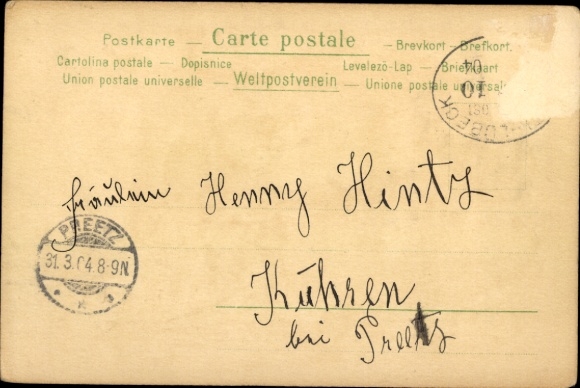 Postkarte — Carte postale — Brevkort - Brefkort.
Cartolina postale — Dopisnice Levelező-Lap — Briefkaart
Union postale universelle — Weltpostverein — Unione postale universale
LÜBECK
10
04
Fräulein Henny Hintz
PREETZ
31.3.04.8-9N.
Kühren
bei Preetz